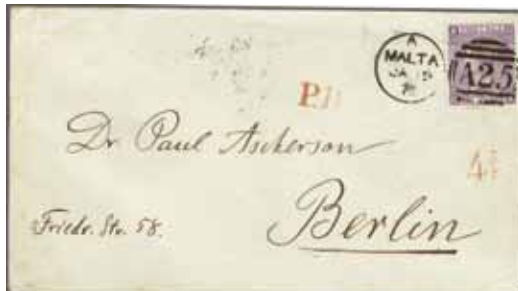 A
MALTA
JA 15
A25
Dr Paul Ascherson
Friedr. Str. 58.
Berlin